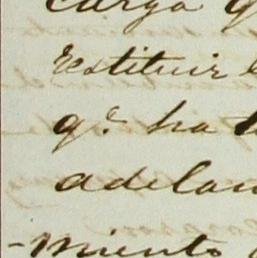 carga q
restituir
q.e ha
adelan
-miento